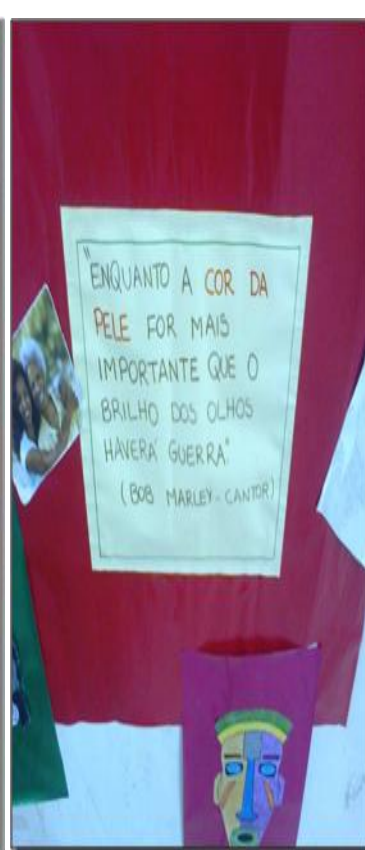 "ENQUANTO A COR DA
PELE FOR MAIS
IMPORTANTE QUE O
BRILHO DOS OLHOS
HAVERÁ GUERRA"
(BOB MARLEY - CANTOR)